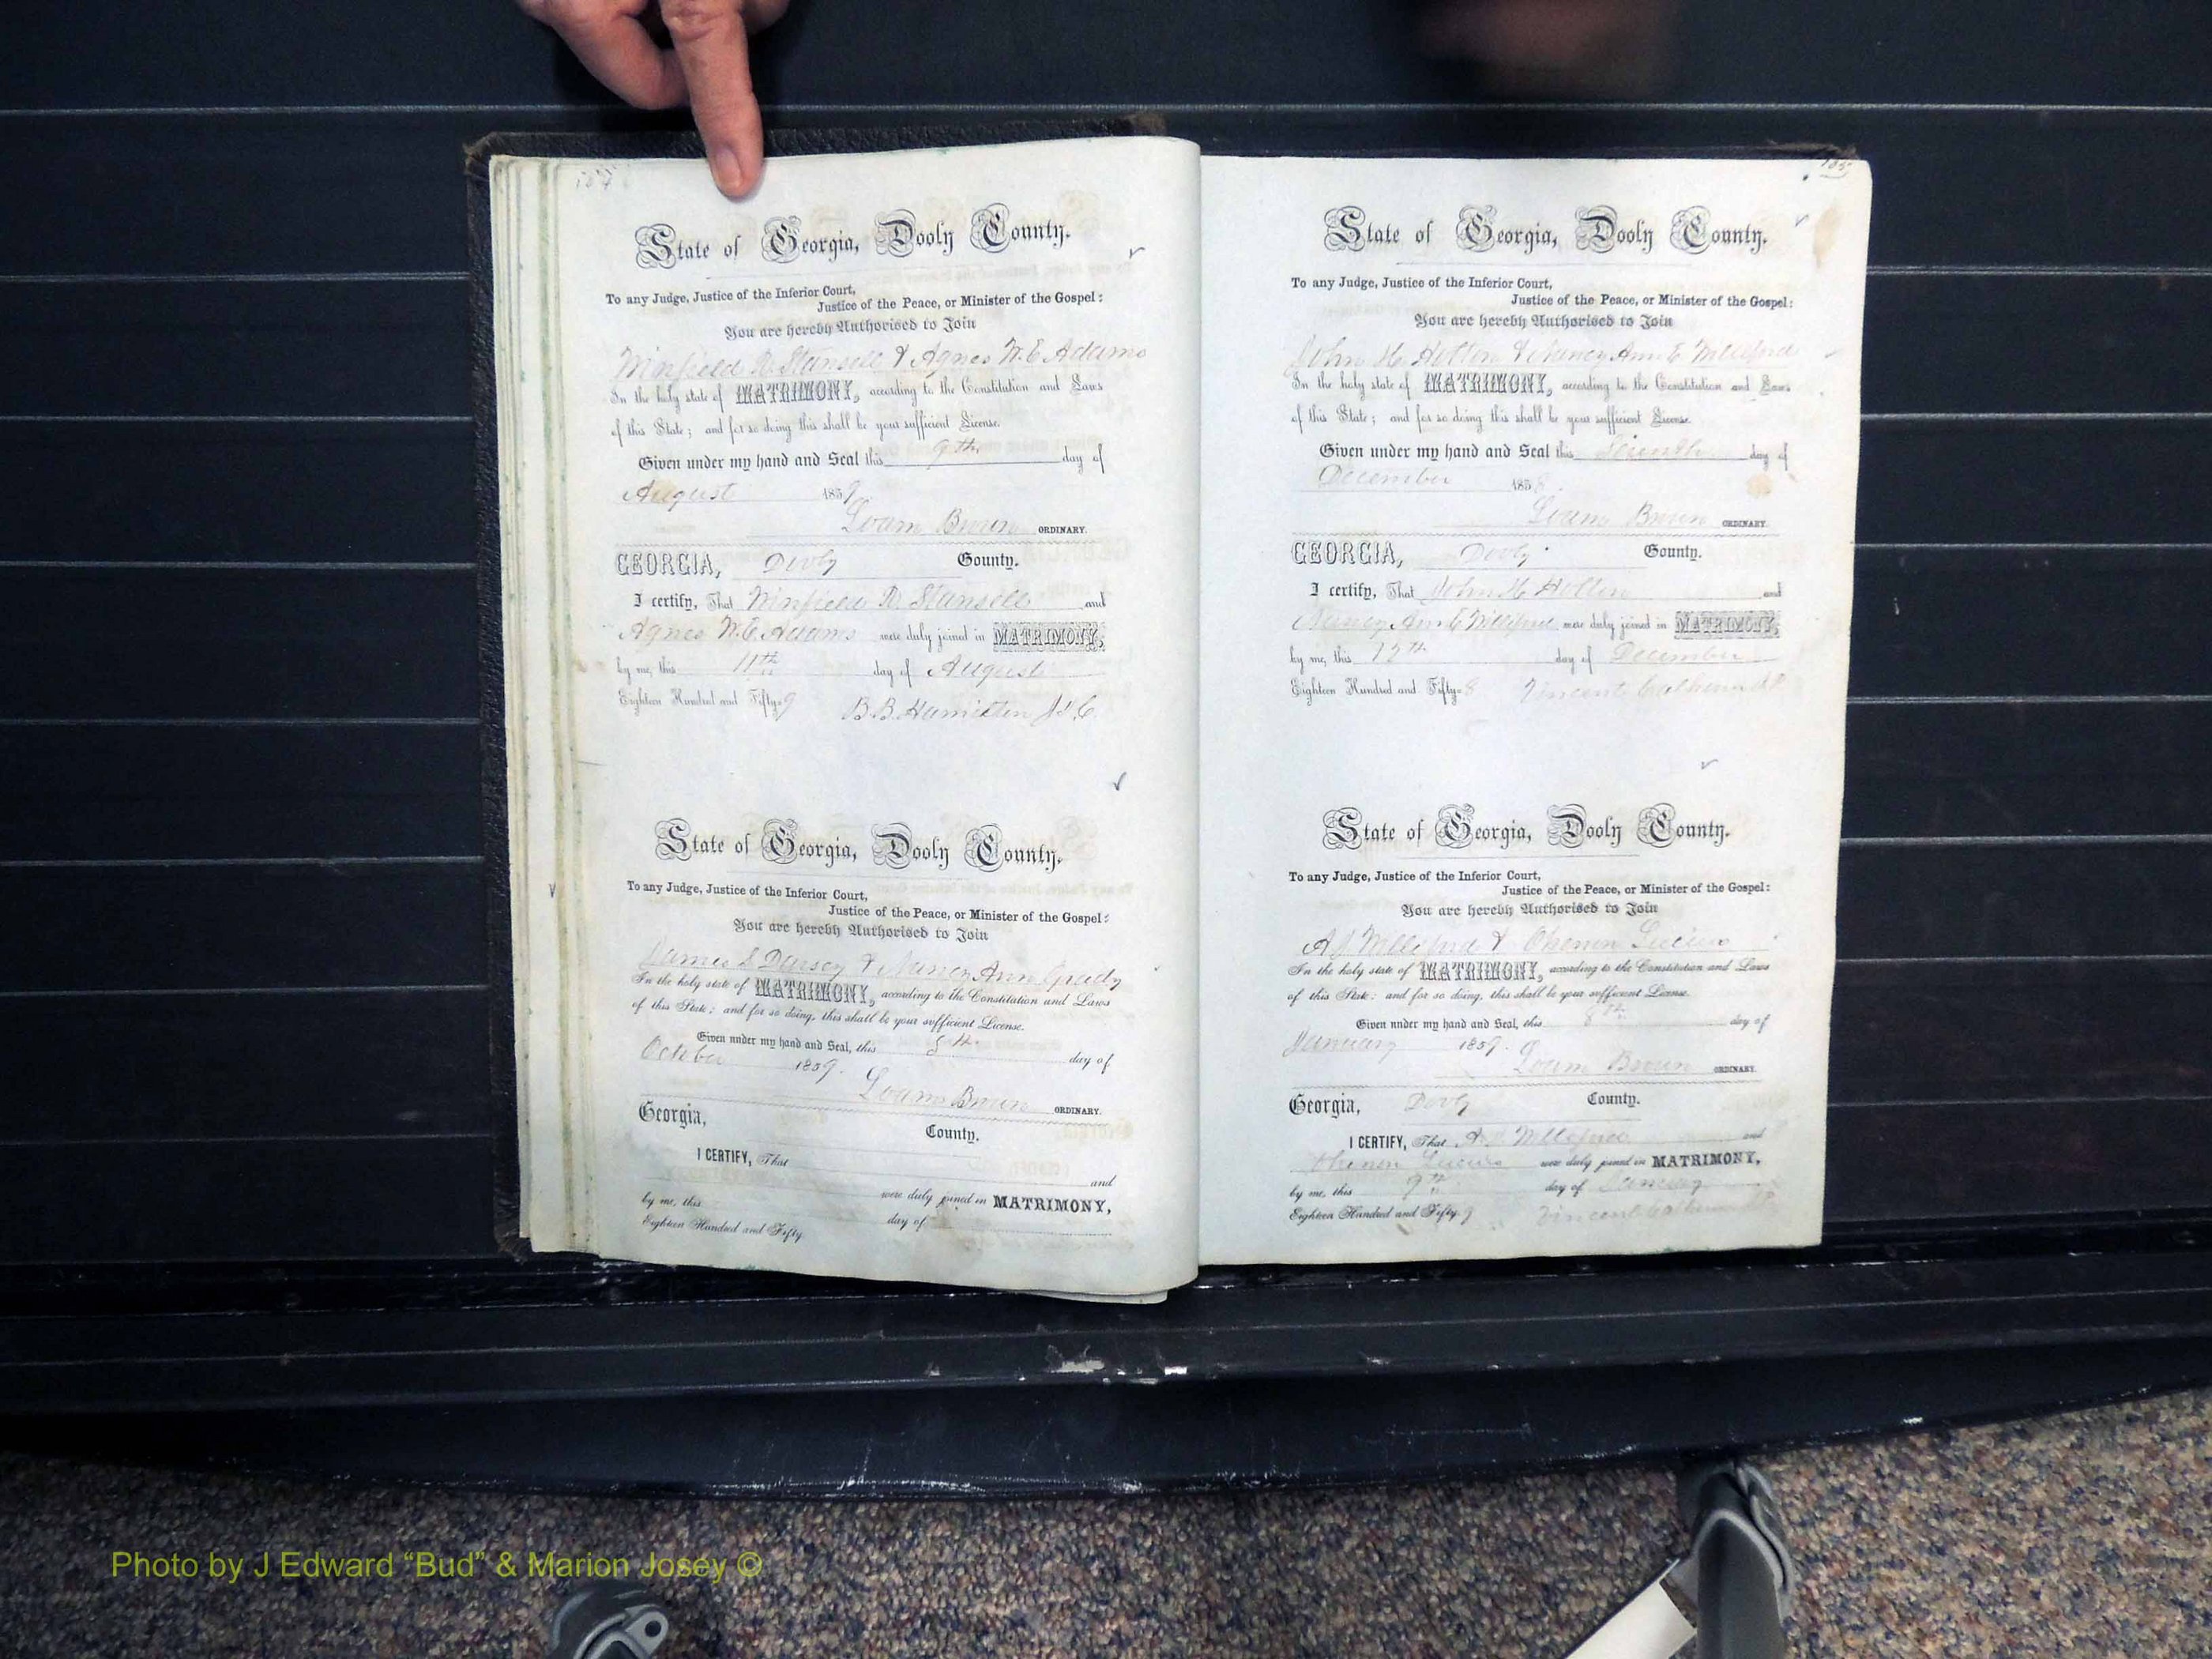 State of Georgia, Dooly County.
To any Judge, Justice of the Inferior Court,
Justice of the Peace, or Minister of the Gospel:
You are hereby Authorised to Join
Winfield R. Stansell & Agnes W. E. Adams
In the holy state of MATRIMONY, according to the Constitution and Laws
of this State; and for so doing this shall be your sufficient License.
Given under my hand and Seal this 9th day of
August 1859.
Brown ORDINARY.
GEORGIA, Dooly County.
I certify, That Winfield R. Stansell and
Agnes W. E. Adams were duly joined in MATRIMONY,
by me, this 11th day of August
Eighteen Hundred and Fifty-9 B. B. Hamilton
State of Georgia, Dooly County.
To any Judge, Justice of the Inferior Court,
Justice of the Peace, or Minister of the Gospel:
You are hereby Authorised to Join
James S Dorsey & Nancy Ann Grady
In the holy state of MATRIMONY, according to the Constitution and Laws
of this State; and for so doing, this shall be your sufficient License.
Given under my hand and Seal, this 5th day of
October 1859.
Brown ORDINARY.
Georgia, County.
I CERTIFY, That and
were duly joined in MATRIMONY,
by me, this day of
Eighteen Hundred and Fifty
185
State of Georgia, Dooly County.
To any Judge, Justice of the Inferior Court,
Justice of the Peace, or Minister of the Gospel:
You are hereby Authorised to Join
John H. & Nancy Ann E. Williford
In the holy state of MATRIMONY, according to the Constitution and Laws
of this State; and for so doing this shall be your sufficient License.
Given under my hand and Seal this day of
December 1858.
Brown ORDINARY.
GEORGIA, Dooly County.
I certify, That John H. and
Nancy Ann E Williford were duly joined in MATRIMONY,
by me, this day of December
Eighteen Hundred and Fifty-8 Vincent
State of Georgia, Dooly County.
To any Judge, Justice of the Inferior Court,
Justice of the Peace, or Minister of the Gospel:
You are hereby Authorised to Join
Williford &
In the holy state of MATRIMONY, according to the Constitution and Laws
of this State; and for so doing, this shall be your sufficient License.
Given under my hand and Seal, this 8th day of
January 1859.
Brown ORDINARY.
Georgia, Dooly County.
I CERTIFY, That Williford and
were duly joined in MATRIMONY,
by me, this 9th day of January
Eighteen Hundred and Fifty 9 Vincent
Photo by J Edward “Bud” & Marion Josey ©